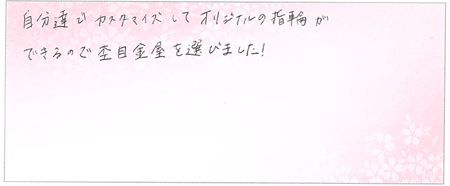 自分達でカスタマイズしてオリジナルの指輪が
できるので杢目金屋を選びました!